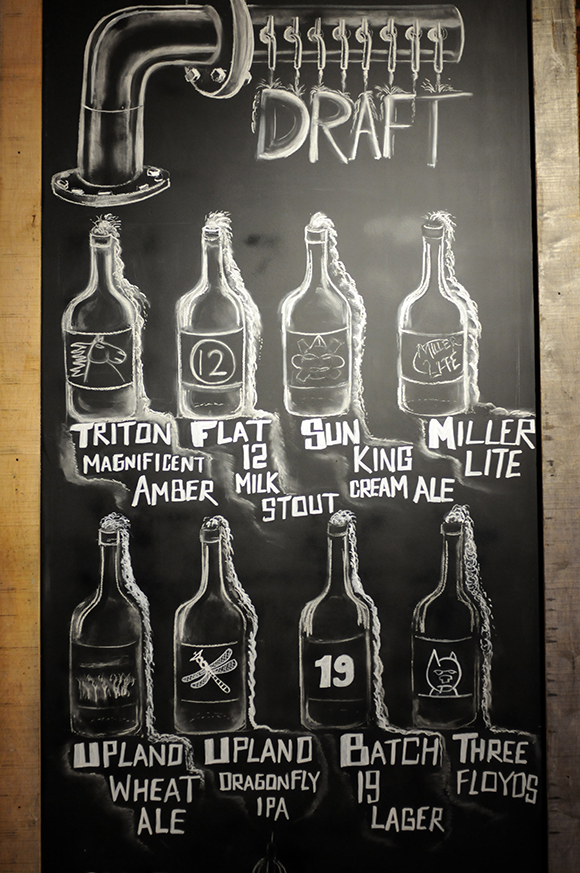 DRAFT
12
MILLER
LITE
TRITON
MAGNIFICENT
AMBER
FLAT
12
MILK
STOUT
SUN
KING
CREAM ALE
MILLER
LITE
19
UPLAND
WHEAT
ALE
UPLAND
DRAGONFLY
IPA
BATCH
19
LAGER
THREE
FLOYDS